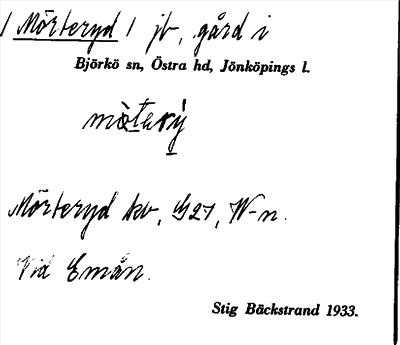 / Mörteryd / jb, gård i
Björkö sn, Östra hd, Jönköpings l.
Mörteryd kv, G27, W-n.
Vid Emån.
Stig Bäckstrand 1933.